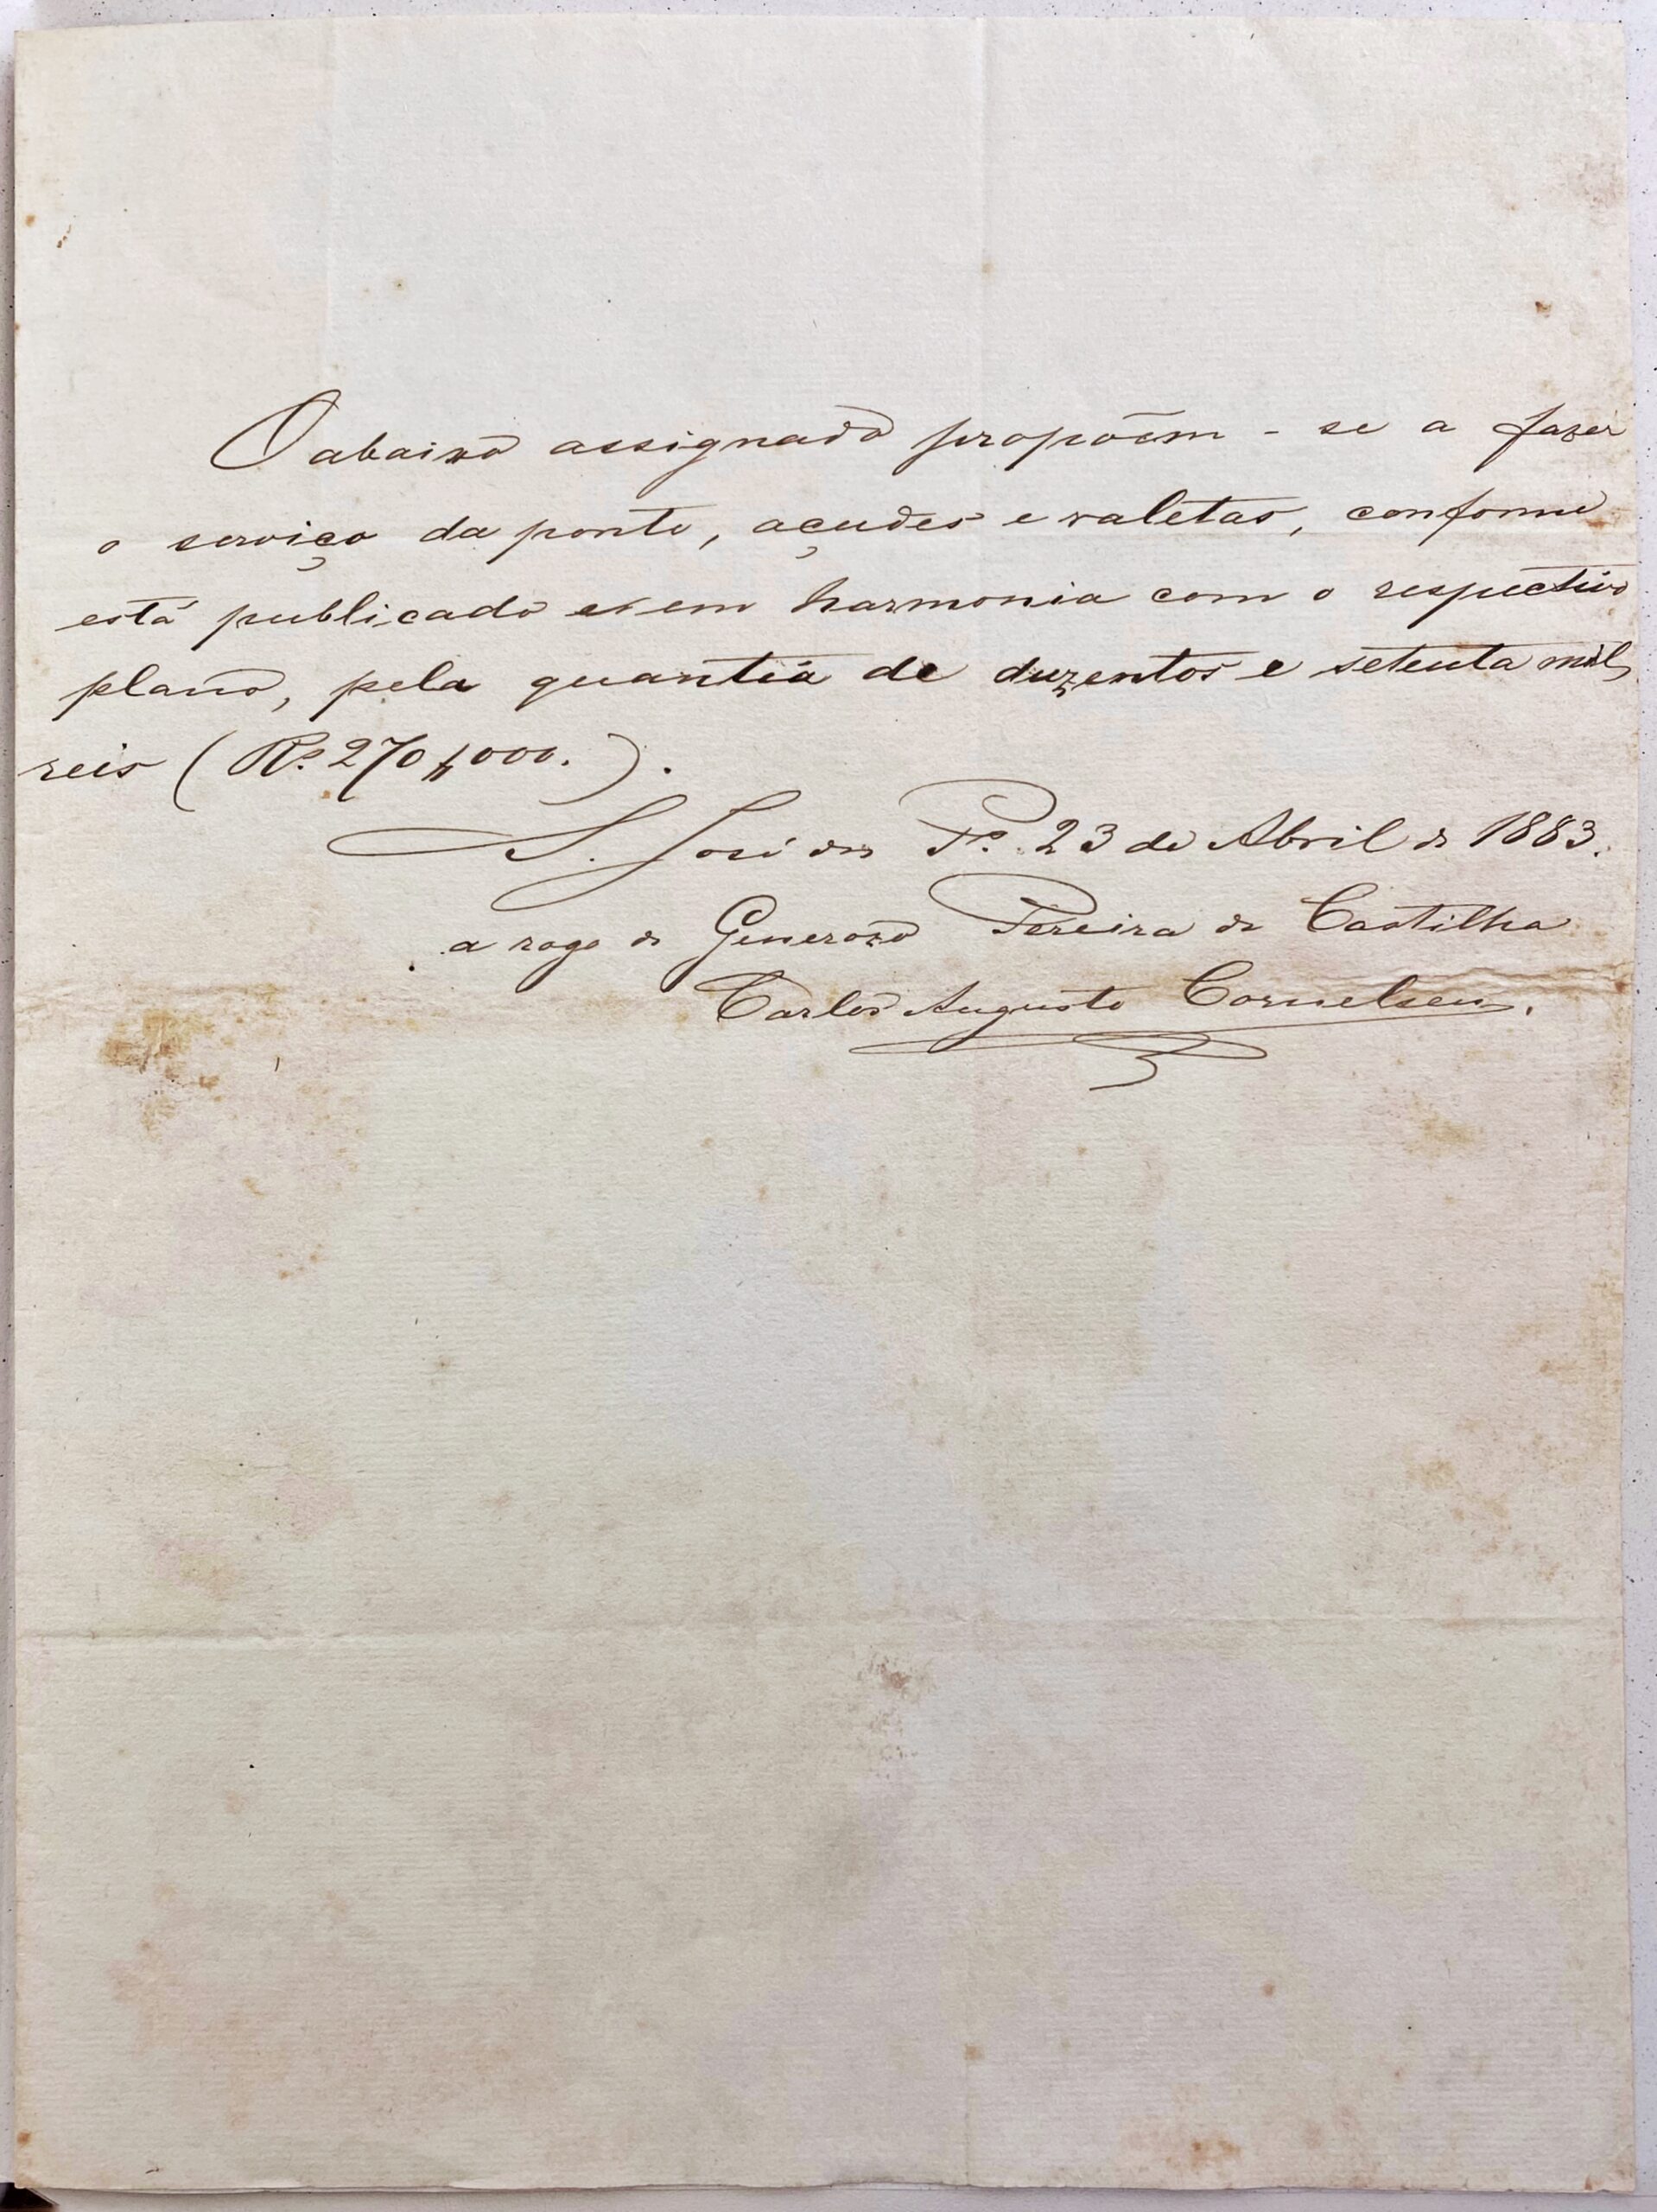 O abaixo assignado propõem-se a fazer
o serviço da ponte, açudes e valetas, conforme
está publicado e em harmonia com o respectivo
plano, pela quantia de duzentos e setenta mil
reis (Rs. 270$000.).
S. José dos Ps. 23 de Abril de 1883.
a rogo de Generozo Pereira de Castilha
Carlos Augusto Cornelsen.